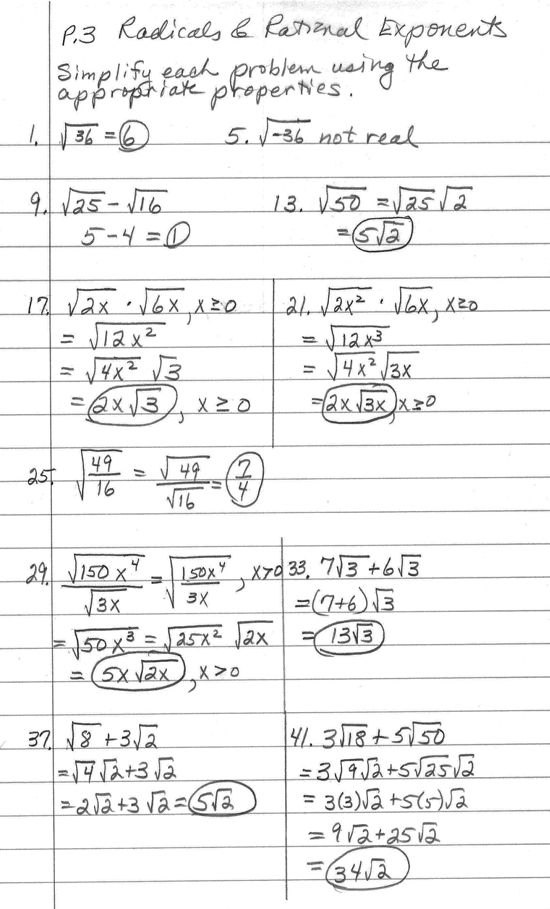 P.3 Radicals & Rational Exponents
Simplify each problem using the
appropriate properties.
1. √36 = 6
5. √-36 not real
9. √25 - √16
5 - 4 = 1
13. √50 = √25 √2
= 5√2
17. √2x · √6x, x ≥ 0
= √12x²
= √4x² √3
= 2x√3, x ≥ 0
21. √2x² · √6x, x ≥ 0
= √12x³
= √4x² √3x
= 2x√3x, x ≥ 0
25. √(49/16) = √49/√16 = 7/4
29. √150x⁴/√3x = √(150x⁴/3x), x > 0
= √50x³ = √25x² √2x
= 5x√2x, x > 0
33. 7√3 + 6√3
= (7+6)√3
= 13√3
37. √8 + 3√2
= √4 √2 + 3√2
= 2√2 + 3√2 = 5√2
41. 3√18 + 5√50
= 3√9√2 + 5√25√2
= 3(3)√2 + 5(5)√2
= 9√2 + 25√2
= 34√2